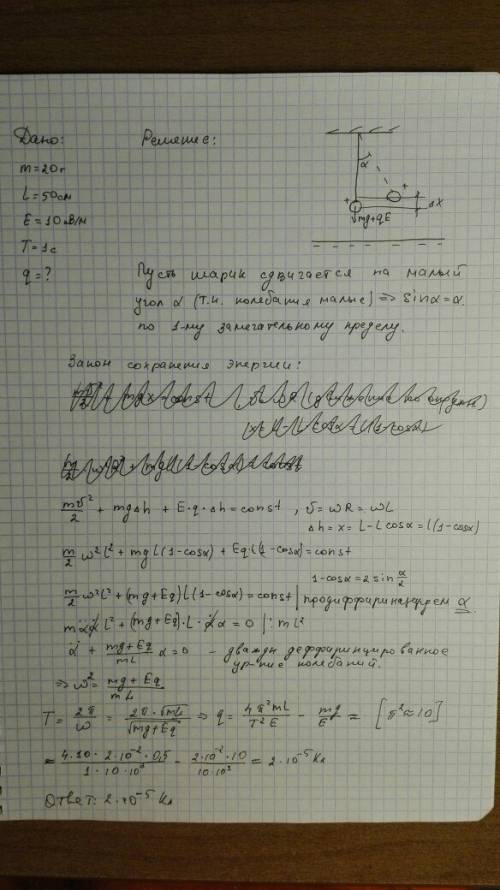 Дано:
Решение:
m = 20г
L = 50см
E = 10 кВ/м
T = 1с
q = ?
α
+
+
ΔX
mg+qE
Пусть шарик сдвигается на малый
угол α (т.к. колебания малые) => sinα = α.
по 1-му замечательному пределу.
Закон сохранения энергии:
mv²/2 + mgΔh + E·q·Δh = const, v = ωR = ωL
Δh = x = L - Lcosα = l(1-cosα)
m/2 ω²l² + mgl(1-cosα) + Eql(1-cosα) = const
1-cosα = 2 sin α/2
m/2 ω²l² + (mg+Eq)l(1-cosα) = const | продиффиринцируем α.
mα̇α̈l² + (mg+Eq)·L·α̇α = 0 |: ml²
α̈ + (mg+Eq)/(mL) α = 0 - дважды деффиринцированное
ур-ние колебаний.
=> ω² = (mg+Eq)/(mL)
T = 2π/ω = 2π·√(mL)/√(mg+Eq) => q = 4π²mL/(T²E) - mg/E = [π²≈10]
= (4·10·2·10⁻²·0,5)/(1·10·10³) - (2·10⁻²·10)/(10·10³) = 2·10⁻⁵ Кл
Ответ: 2·10⁻⁵ Кл